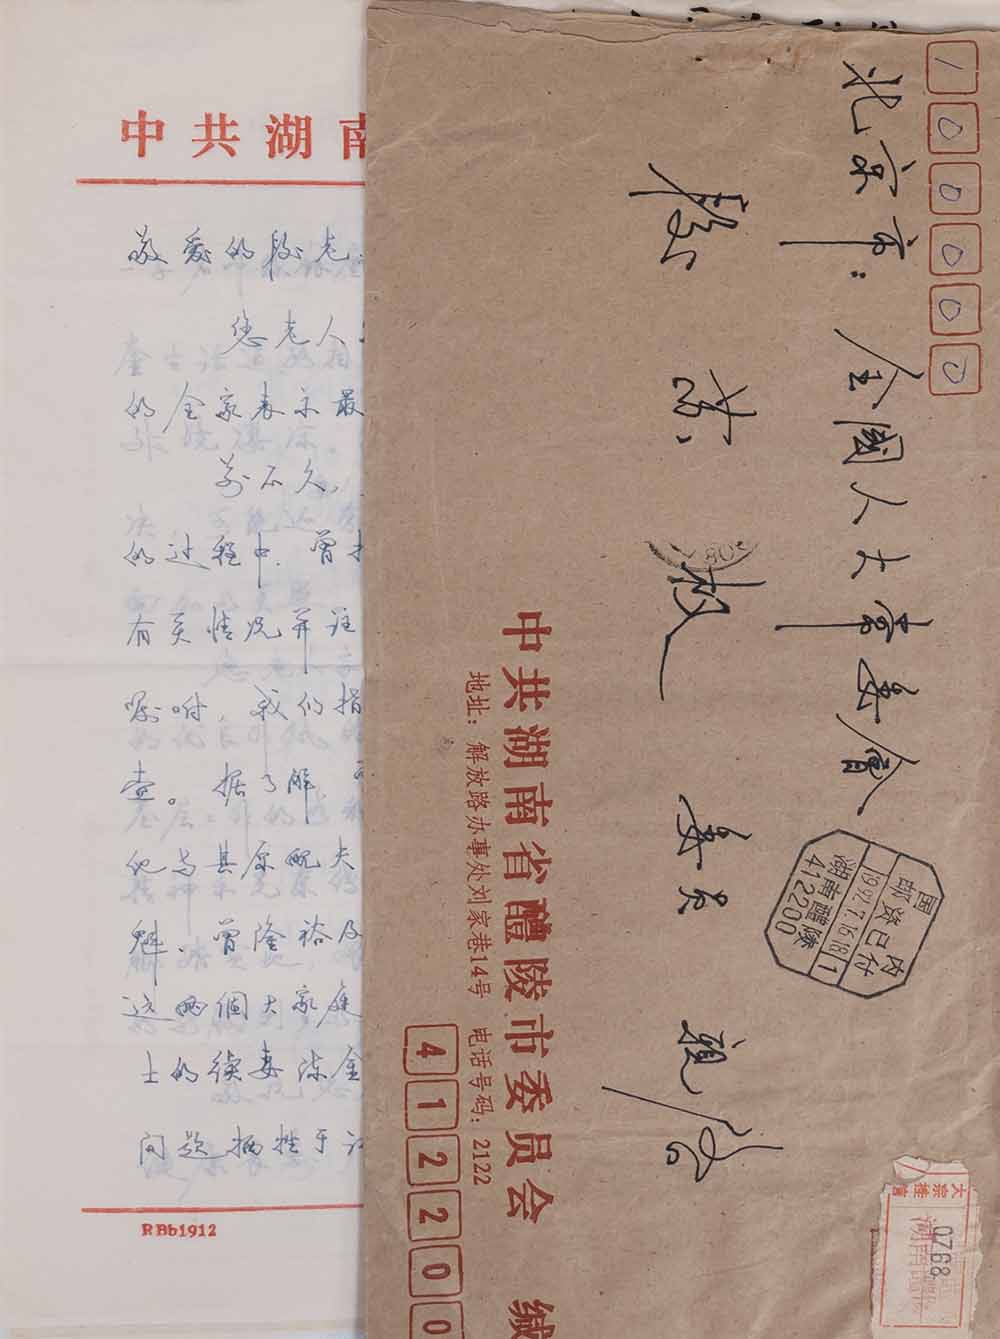 中共湖南
敬爱的段老
您老人
的全家表示最
前不久,
的过程中.曾
有关情况并
嘱咐.我们指
查。据了解,
他与其原配夫
魁、曾隆裕及
这两個大家庭
士的续妻陈金
问题栖牲于
RBb1912
100000
北京市:全國人大常委會
段苏权委员 親啓
国内
邮资已付
1992.7.16.18 1
湖南醴陵
412200
中共湖南省醴陵市委员会 缄
地址:解放路办事处刘家巷14号 电话号码:2122
412200
大宗挂
湖南醴陵
0768